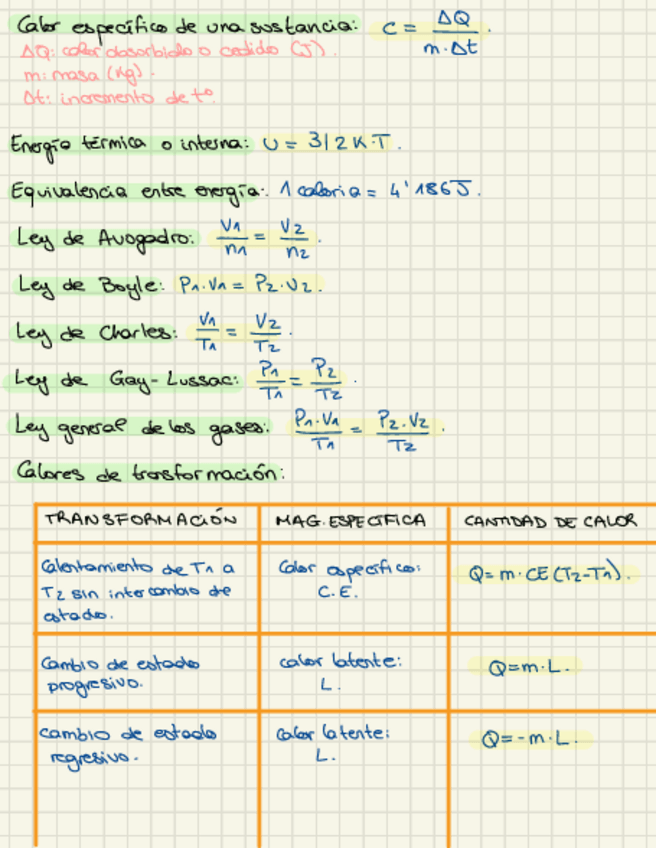 Calor específico de una sustancia: c = ΔQ / m·Δt.
ΔQ: calor absorbido o cedido (J).
m: masa (Kg).
Δt: incremento de tº.
Energía térmica o interna: U = 3/2 K·T.
Equivalencia entre energía: 1 caloria = 4'186J.
Ley de Avogadro: V1/n1 = V2/n2.
Ley de Boyle: P1·V1 = P2·V2.
Ley de Charles: V1/T1 = V2/T2.
Ley de Gay-Lussac: P1/T1 = P2/T2.
Ley general de los gases: P1·V1/T1 = P2·V2/T2.
Calores de transformación:
TRANSFORMACIÓN MAG. ESPECÍFICA CANTIDAD DE CALOR
Calentamiento de T1 a
T2 sin intercambio de
estado.
Calor específico:
C.E.
Q=m·CE(T2-T1).
Cambio de estado
progresivo.
calor latente:
L.
Q=m·L.
cambio de estado
regresivo.
calor latente:
L.
Q=-m·L.